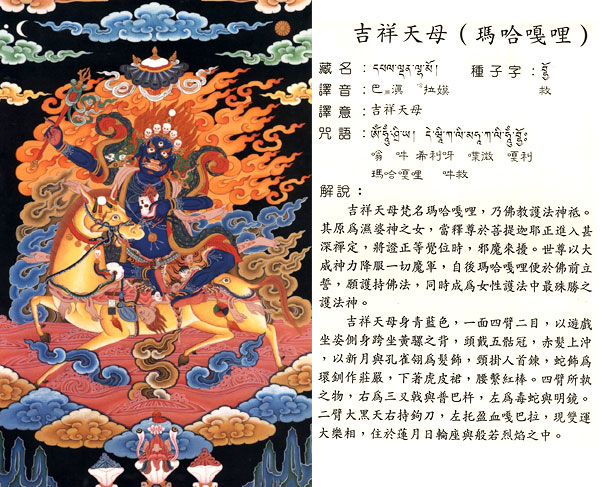 吉祥天母（瑪哈嘎哩）
藏名：དཔལ་ལྡན་ལྷ་མོ། 種子字：བྷྱོ
譯音：巴 滇 拉嫫 救
譯意：吉祥天母
咒語：
嗡 吽 希利呀 喋微 嘎利
瑪哈嘎哩 吽救
解說：
吉祥天母梵名瑪哈嘎哩，乃佛教護法神祇。
其原為濕婆神之女，當釋尊於菩提迦耶正進入甚
深禪定，將證正等覺位時，邪魔來擾。世尊以大
威神力降服一切魔軍，自後瑪哈嘎哩便於佛前立
誓，願護持佛法，同時成為女性護法中最殊勝之
護法神。
吉祥天母身青藍色，一面四臂二目，以遊戲
坐姿側身跨坐黃騾之背，頭戴五骷冠，赤髮上沖
，以新月與孔雀翎為髮飾，頸掛人首鍊，蛇飾為
環釧作莊嚴，下著虎皮裙，腰繫紅棒。四臂所執
之物，右為三叉戟與普巴杵，左為毒蛇與明鏡。
二臂大黑天右持鉤刀，左托盈血嘎巴拉，現雙運
大樂相，住於蓮月日輪座與般若烈焰之中。